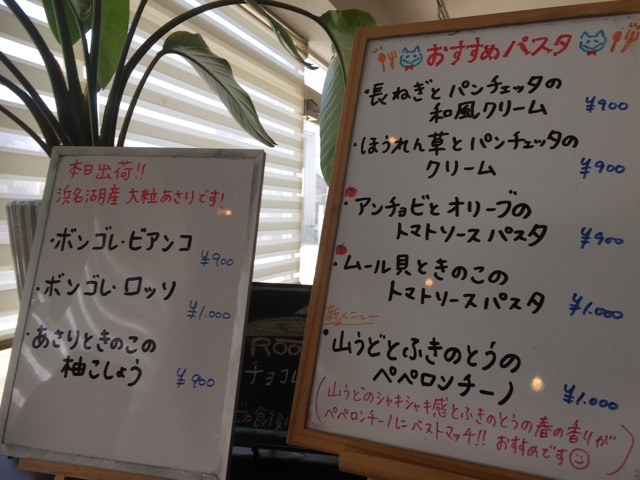 本日出荷!!
浜名湖産 大粒あさりです!
・ボンゴレ・ビアンコ
¥900
・ボンゴレ・ロッソ
¥1.000
・あさりときのこの
柚こしょう
¥900
おすすめパスタ
・長ねぎとパンチェッタの
和風クリーム
¥900
・ほうれん草とパンチェッタの
クリーム
¥900
・アンチョビとオリーブの
トマトソースパスタ
¥900
・ムール貝ときのこの
トマトソースパスタ
¥1.000
新メニュー
・山うどとふきのとうの
ペペロンチーノ
¥1.000
(山うどのシャキシャキ感とふきのとうの春の香りが
ペペロンチーノにベストマッチ!! おすすめです)
チョコレ
の食後